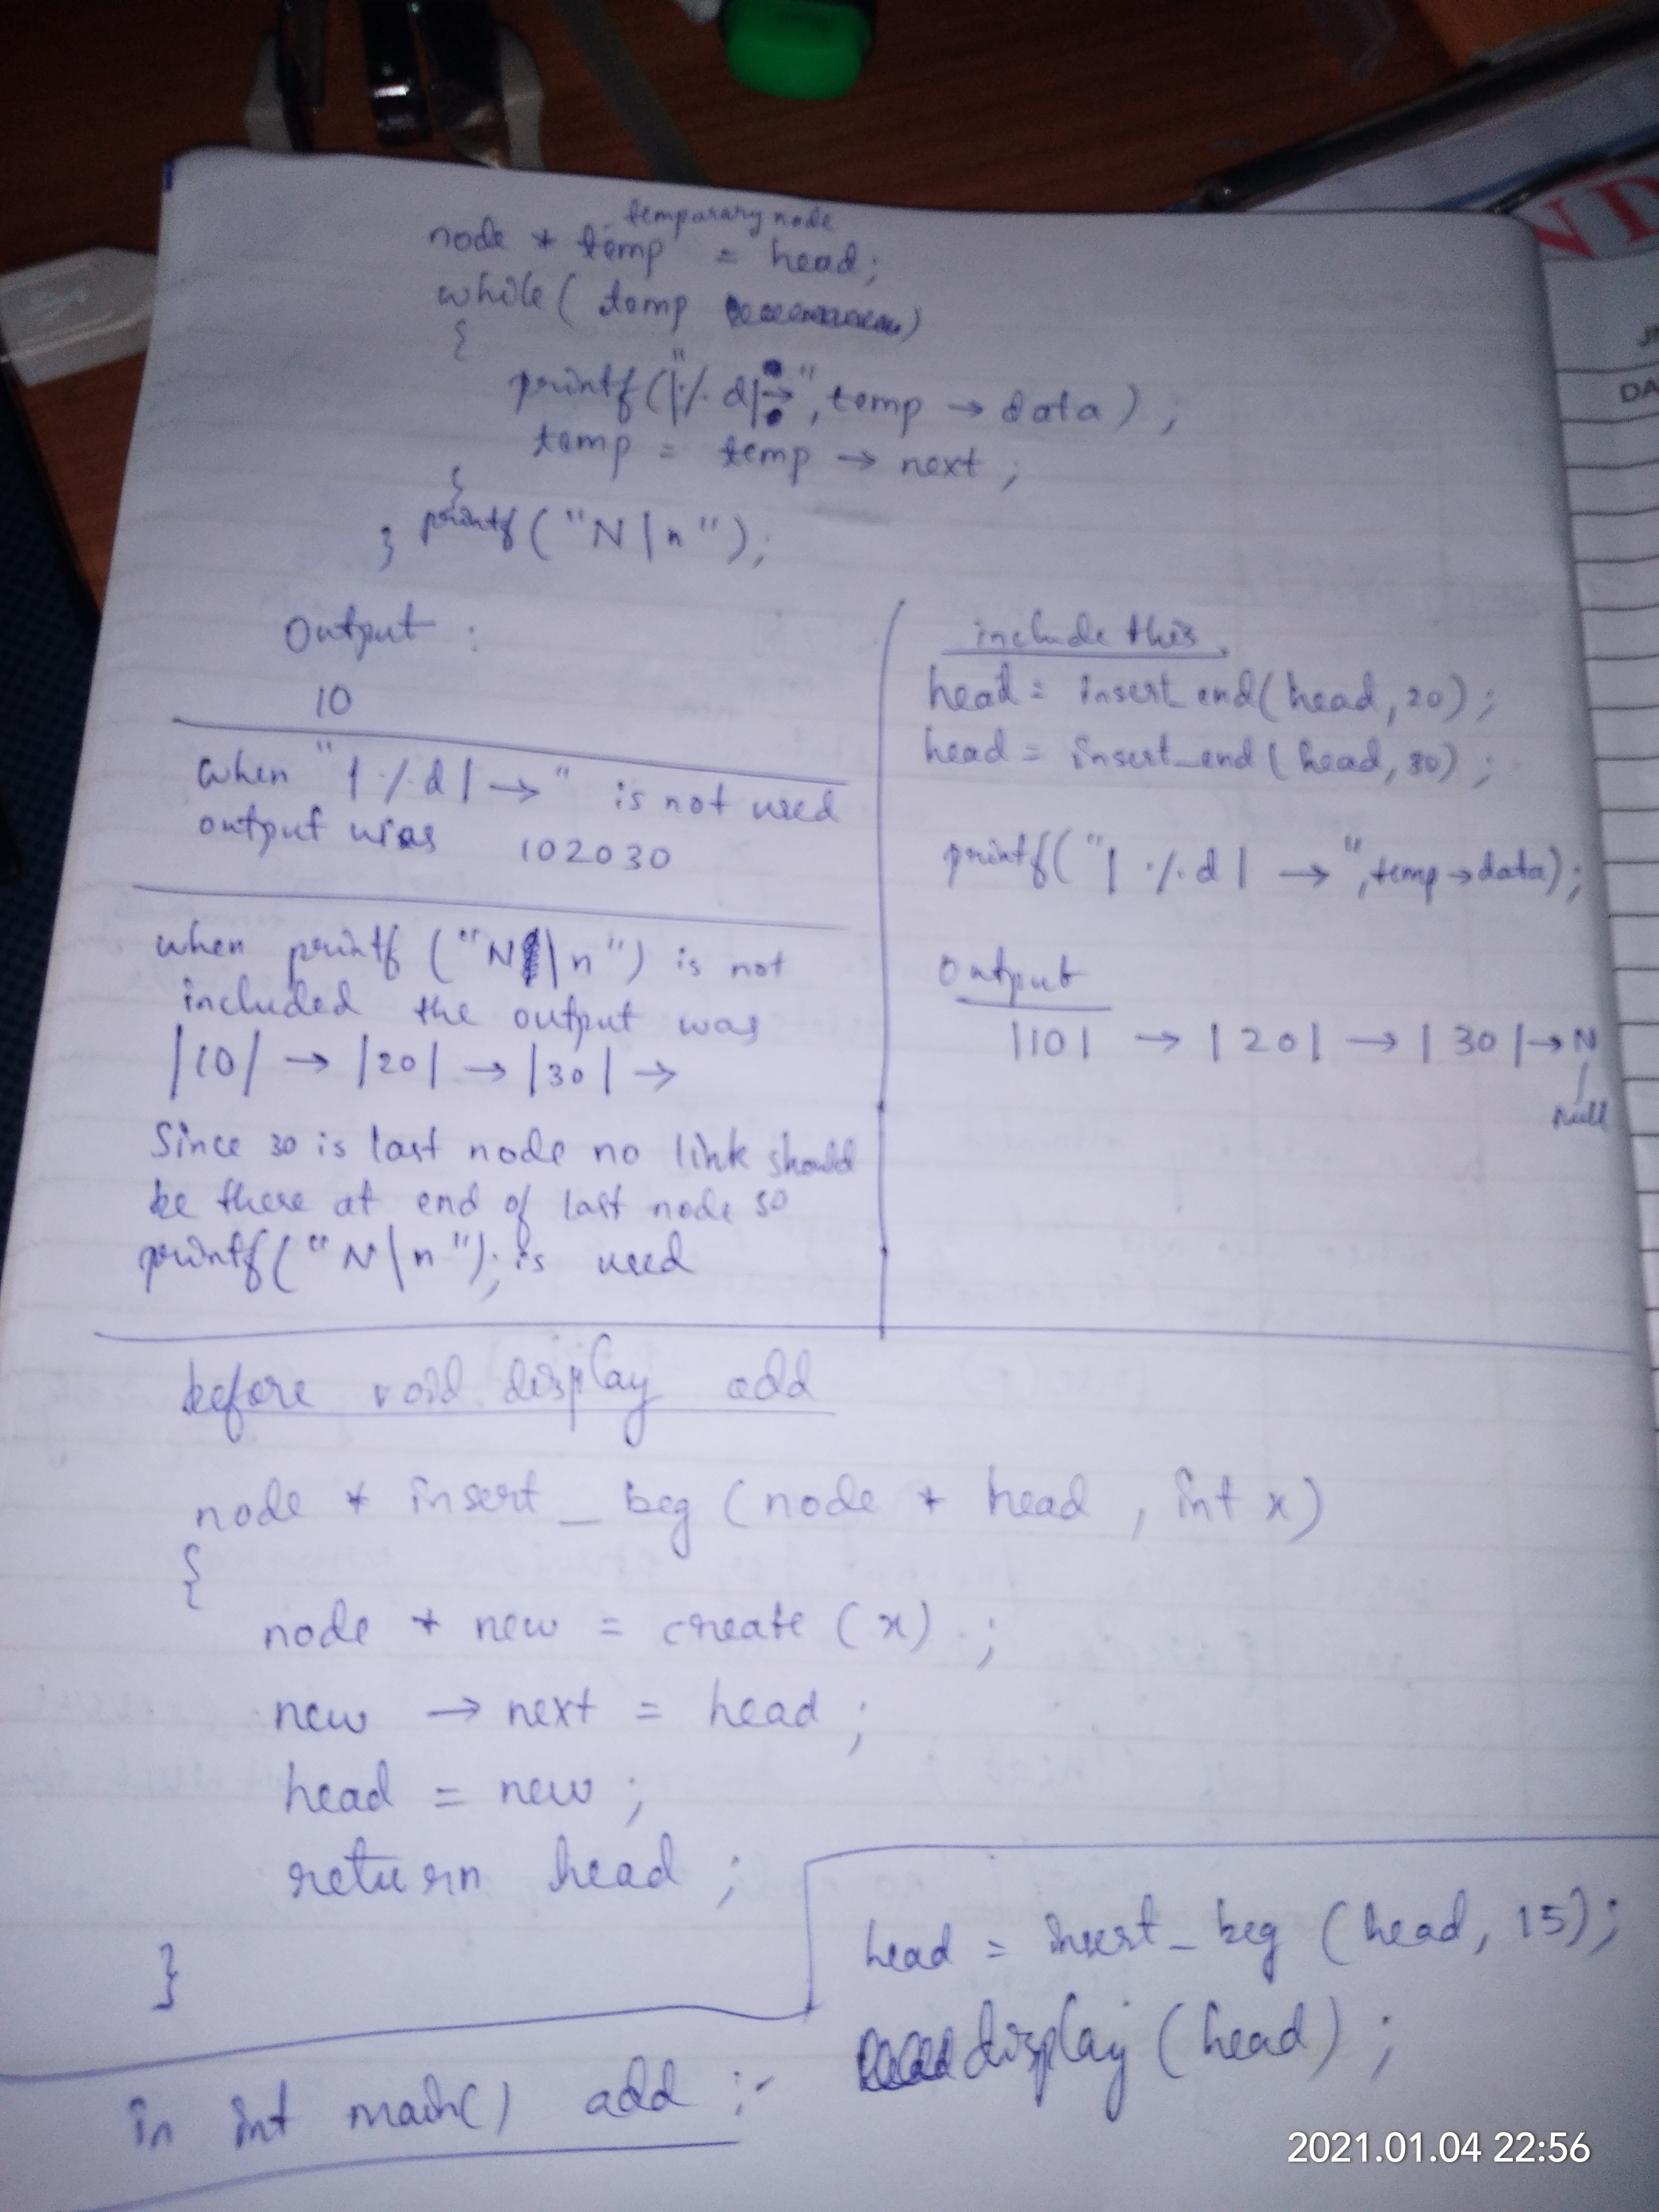 temporary node
node * temp = head;
while( temp )
{
printf("|%d|→", temp → data);
temp = temp → next;
}
printf("N\n");
}
Output :
10
when "|%d|→" is not used
output was 102030
when printf ("N\n") is not
included the output was
|10| → |20| → |30| →
Since 30 is last node no link should
be there at end of last node so
printf("N\n"); is used
include this.
head = insert_end(head,20);
head = insert_end(head,30);
printf("|%d| →", temp→data);
Output
|10| → |20| → |30|→ N
Null
before void display add
node * insert_beg (node * head, int x)
{
node * new = create (x) ;
new → next = head ;
head = new ;
return head ;
}
in int main() add :-
head = insert_beg (head, 15);
display (head) ;
ND
DA
2021.01.04 22:56